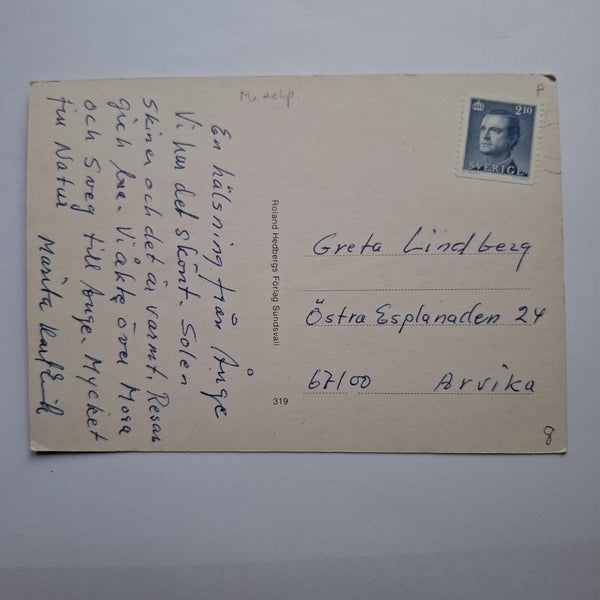 En hälsning från Ånge
Vi har det skönt. Solen
skiner och det är varmt. Resan
gick bra. Vi åkte över Mora
och Sveg till Ånge. Mycket
fin Natur
Marita
Roland Hedbergs Förlag Sundsvall
319
2 10
SVERIGE
Greta Lindberg
Östra Esplanaden 24
67100 Arvika
8